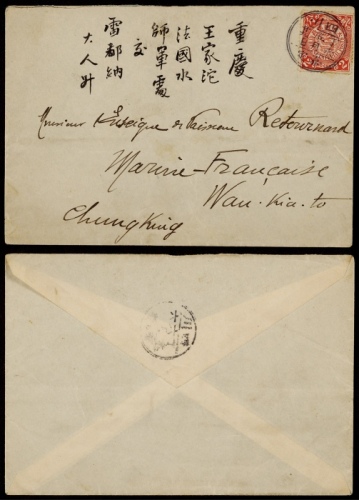 重慶
王家沱
法國水
師軍處
交
雷都納
大人升
Monsieur l'Enseigne de Vaisseau Retournard
Marine Française
Wan-Kia-to
Chungking